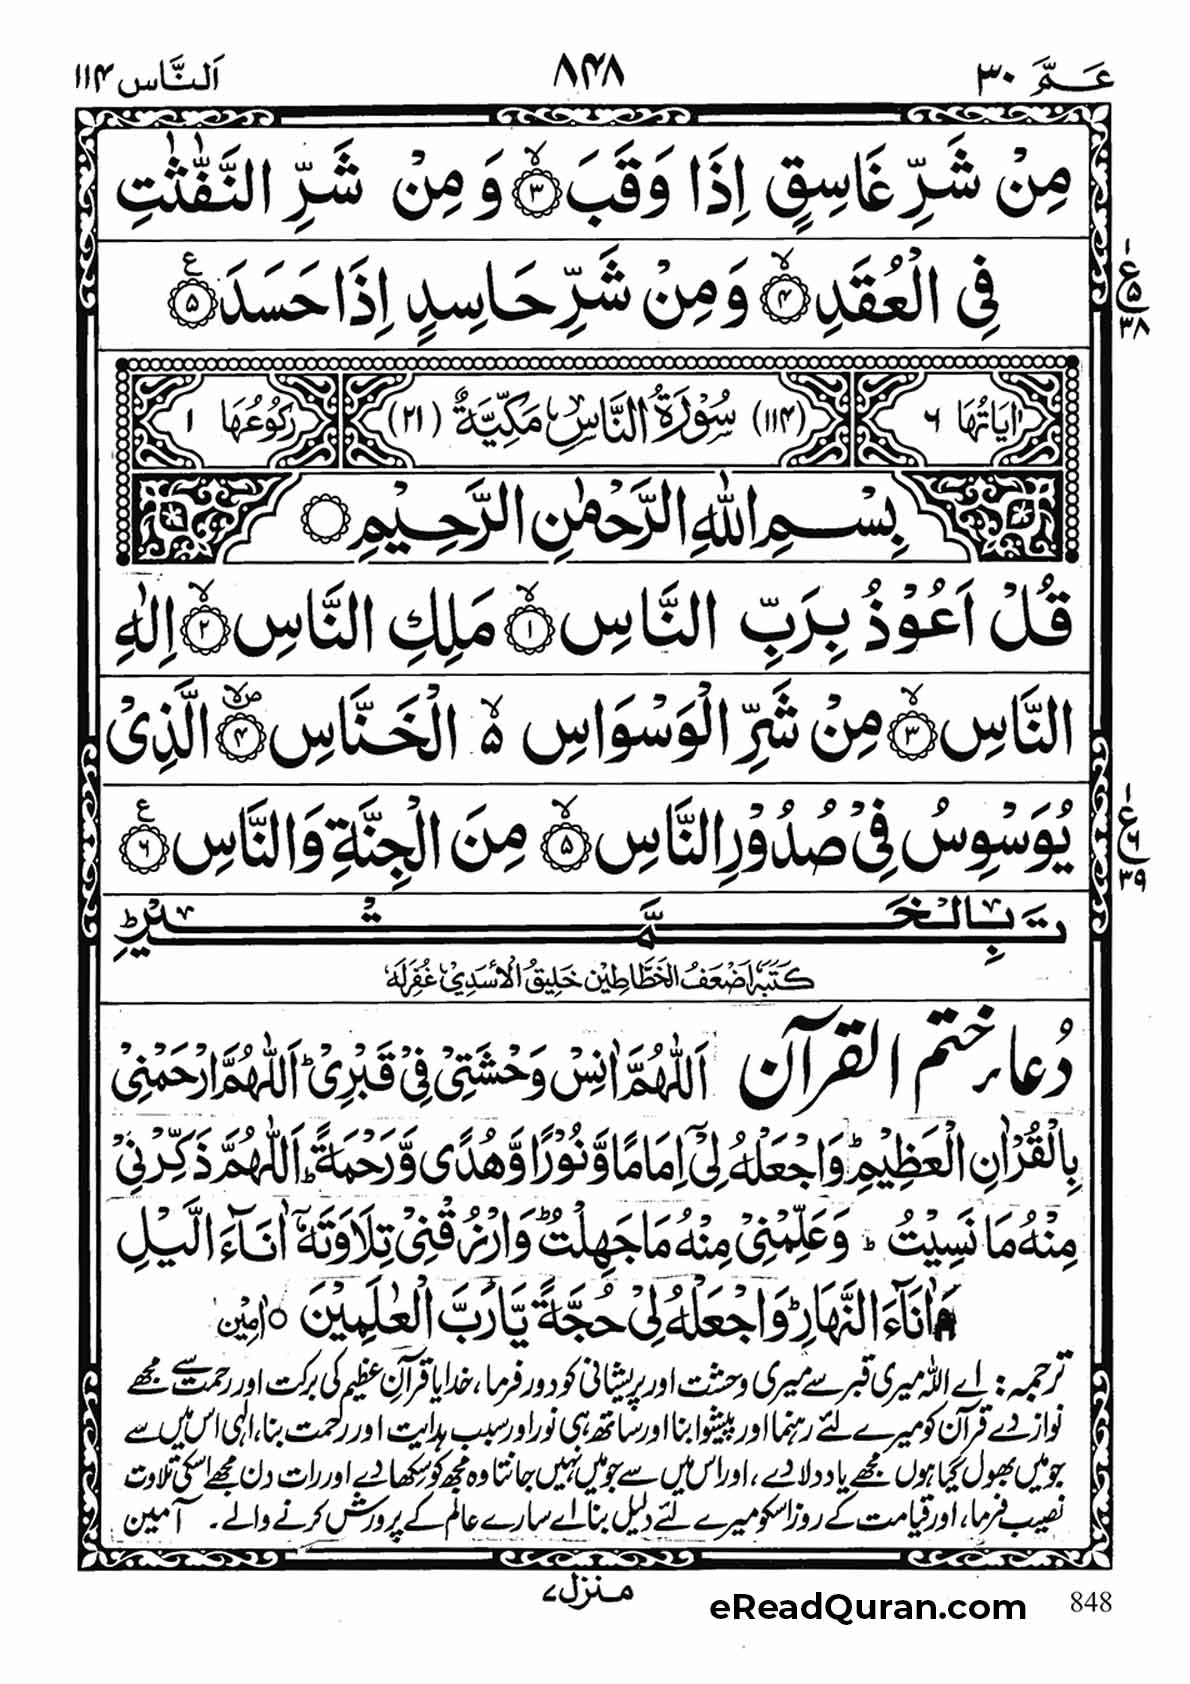 عَمَّ ۳۰
۸۴۸
اَلنَّاس ۱۱۴
مِنْ شَرِّ غَاسِقٍ اِذَا وَقَبَ ۙ﴿۳﴾ وَ مِنْ شَرِّ النَّفّٰثٰتِ
فِی الْعُقَدِ ۙ﴿۴﴾ وَ مِنْ شَرِّ حَاسِدٍ اِذَا حَسَدَ ﴿۵﴾ ع
۱
ع ۵
۳۸
اٰیَاتُهَا ۶
(۱۱۴) سُوْرَةُ النَّاسِ مَكِّیَّةٌ (۲۱)
رُكُوْعُهَا ۱
بِسْمِ اللّٰهِ الرَّحْمٰنِ الرَّحِیْمِ
قُلْ اَعُوْذُ بِرَبِّ النَّاسِ ۙ﴿۱﴾ مَلِكِ النَّاسِ ۙ﴿۲﴾ اِلٰهِ
النَّاسِ ۙ﴿۳﴾ مِنْ شَرِّ الْوَسْوَاسِ ۵ۙ الْخَنَّاسِ ۪ۙ﴿۴﴾ الَّذِیْ
یُوَسْوِسُ فِیْ صُدُوْرِ النَّاسِ ۙ﴿۵﴾ مِنَ الْجِنَّةِ وَ النَّاسِ ﴿۶﴾ ع
۱
ع ۶
۳۹
تَمَّتْ بِالْخَیْرِ
كَتَبَهٗ اَضْعَفُ الْخَطَّاطِیْن خَلِیْقُ الْاَسَدِیْ غُفِرَلَهٗ
دُعاءِ ختم القرآن اَللّٰهُمَّ اٰنِسْ وَحْشَتِیْ فِیْ قَبْرِیْ ؕ اَللّٰهُمَّ ارْحَمْنِیْ
بِالْقُرْاٰنِ الْعَظِیْمِ ؕ وَاجْعَلْهُ لِیْۤ اِمَامًا وَّ نُوْرًا وَّ هُدًی وَّ رَحْمَةً ؕ اَللّٰهُمَّ ذَكِّرْنِیْ
مِنْهُ مَا نَسِیْتُ ؕ وَ عَلِّمْنِیْ مِنْهُ مَا جَهِلْتُ ؕ وَارْزُقْنِیْ تِلَاوَتَهٗۤ اٰنَآءَ الَّیْلِ
وَ اٰنَآءَ النَّهَارِ ؕ وَاجْعَلْهُ لِیْ حُجَّةً یَّا رَبَّ الْعٰلَمِیْنَ ○ اٰمِیْن
ترجمہ: اے اللہ میری قبر سے میری وحشت اور پریشانی کو دور فرما، خدایا قرآنِ عظیم کی برکت اور رحمت سے مجھے
نواز دے قرآن کو میرے لئے رہنما اور پیشوا بنا اور ساتھ ہی نور اور سبب ہدایت اور رحمت بنا، الٰہی اس میں سے
جو میں بھول گیا ہوں مجھے یاد دلا دے، اور اس میں سے جو میں نہیں جانتا وہ مجھ کو سکھا دے اور رات دن مجھے اسکی تلاوت
نصیب فرما، اور قیامت کے روز اسکو میرے لئے دلیل بنا اے سارے عالم کے پرورش کرنے والے۔ آمین
منزل ۷
eReadQuran.com
848